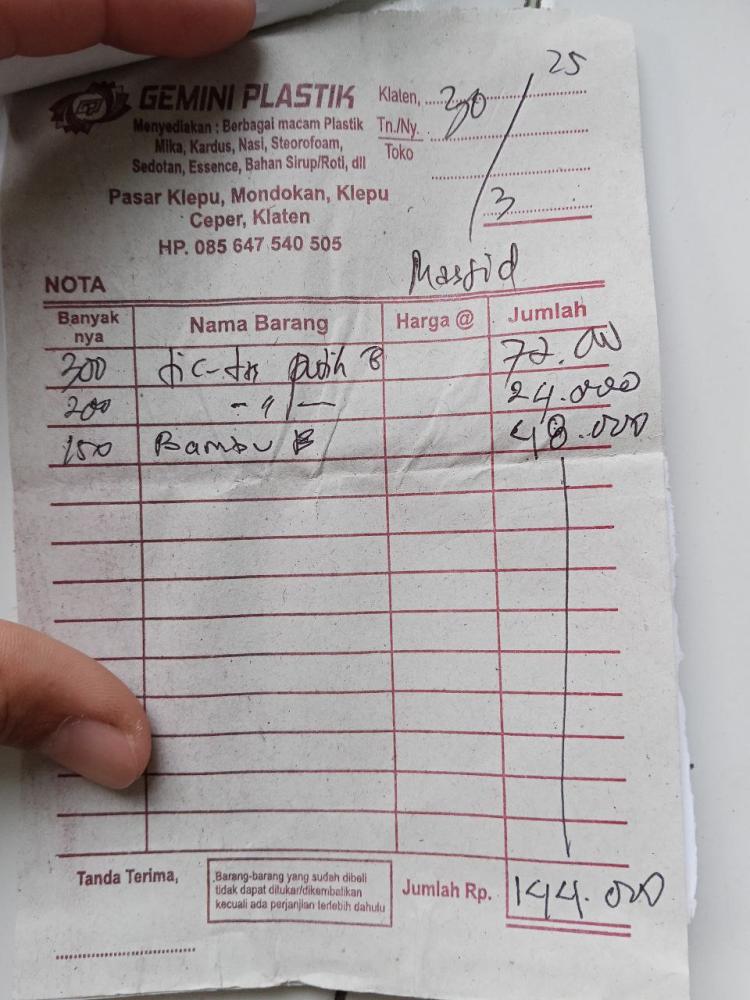 GEMINI PLASTIK
Menyediakan : Berbagai macam Plastik
Mika, Kardus, Nasi, Steorofoam,
Sedotan, Essence, Bahan Sirup/Roti, dll
Pasar Klepu, Mondokan, Klepu
Ceper, Klaten
HP. 085 647 540 505
Klaten, 30 / 3 25
Tn./Ny.
Toko
NOTA
Masjid
Banyak nya Nama Barang Harga @ Jumlah
300 putih B 72.000
200 - " - 24.000
150 Bambu B 48.000
Tanda Terima,
Barang-barang yang sudah dibeli
tidak dapat ditukar/dikembalikan
kecuali ada perjanjian terlebih dahulu
Jumlah Rp. 144.000